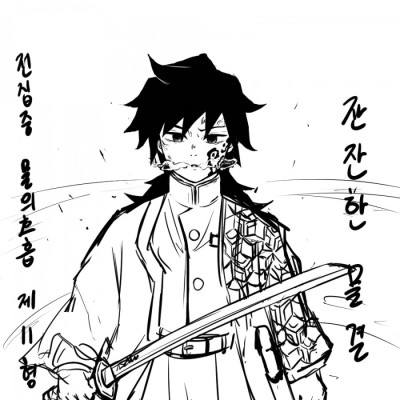 전집중 물의호흡 제11형
잔잔한 물결